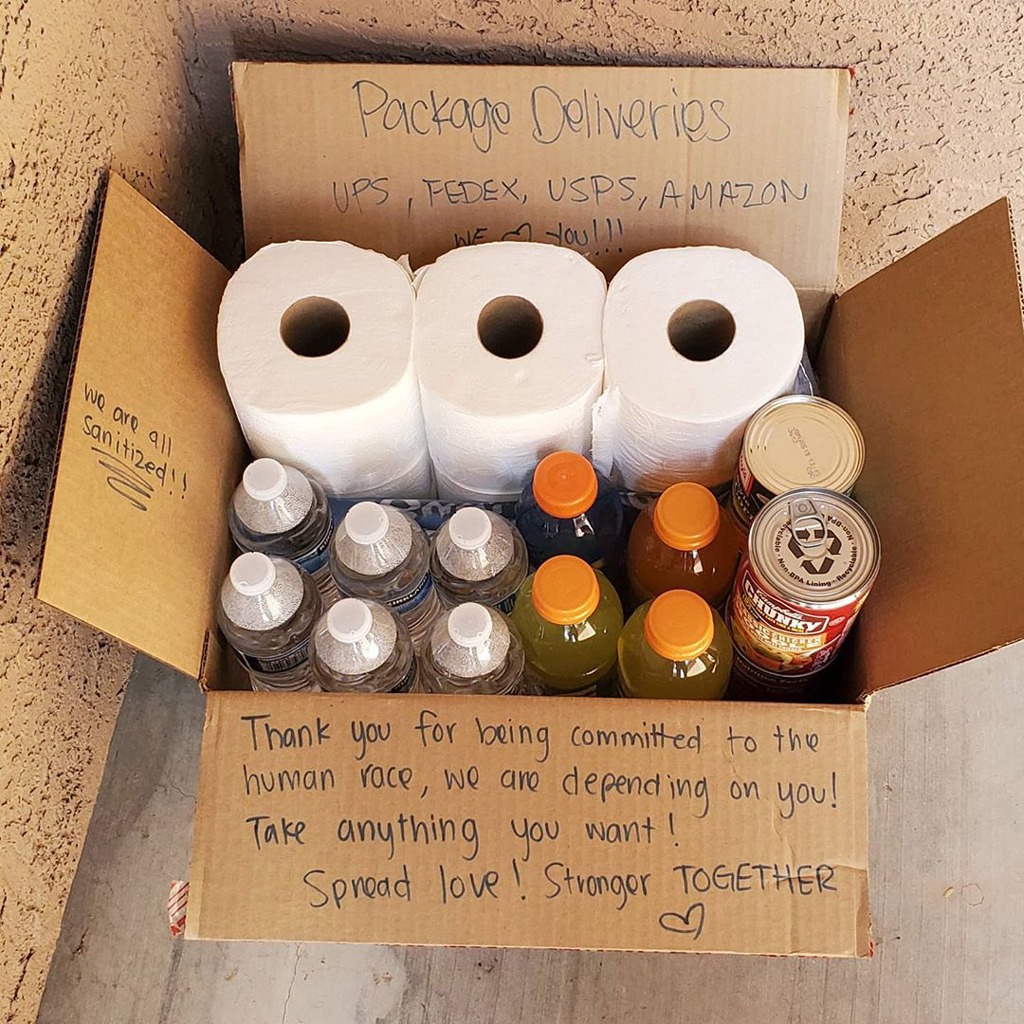 Package Deliveries
UPS, FEDEX, USPS, AMAZON
WE ♡ YOU!!!
we are all
sanitized!!
Non-BPA
Non-BPA Lining - Recyclable
CHUNKY
Thank you for being committed to the
human race, we are depending on you!
Take anything you want!
Spread love! Stronger TOGETHER
♡